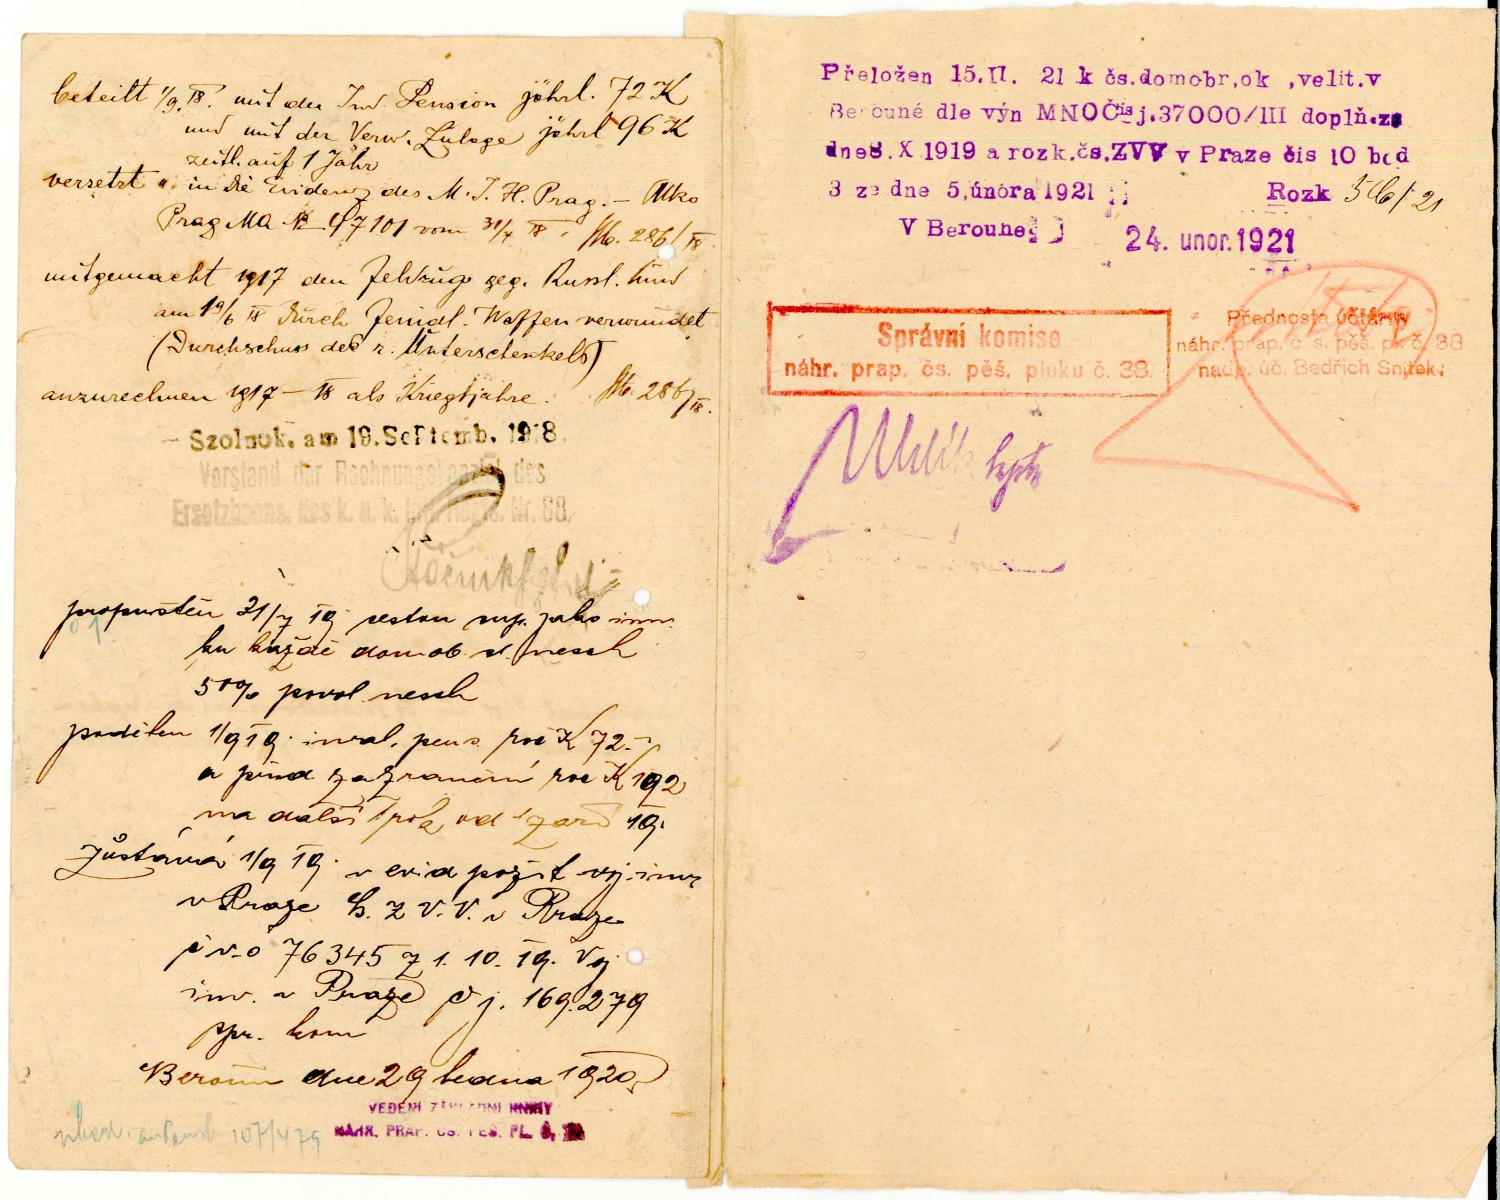 beteilt 1/9. 18. mit der Inv. Pension jährl. 72 K
und mit der Verw. Zulage jährl 96 K
zeitl. auf 1 Jahr
versetzt in die Evidenz des M. I. H. Prag. — Mko
Prag MA № 97101 vom 31/7 18. 286/18.
mitgemacht 1917 den Feldzug geg. Russl. und
am 19/6 18 durch feindl. Waffen verwundet
(Durchschuss des r. Unterschenkels)
anzurechnen 1917 — 18 als Kriegsjahre. 286/18.
Szolnok, am 19. Septemb. 1918.
Vorstand der Rechnungskanzlei des
Ersatzbaons. des k. u. k. Inft. Regts. Nr. 88.
propuštěn 31/7 19 jako inv.
ku každé domob. sl. nesch
50% povol. nesch
podělen 1/9 19. inval. pens. roč K 72.–
a přid zranění roč K 192
na další 1 rok od 1 září 19.
Zůstává 1/9 19. v evid požit voj. inv
v Praze Z. V. V. v Praze
č v. o 76345 z 1. 10. 19. Voj
inv. v Praze č j. 169.279
spr. kom
Beroun dne 29 ledna 1920
VEDENÍ ZÁKLADNÍ KNIHY
NÁHR. PRAP. ČS. PĚŠ. PL. Č.
107/479
Přeložen 15.II. 21 k čs.domobr,ok ,velit.v
Berouně dle výn MNOČis j.37000/III doplň.ze
dne8.X 1919 a rozk.čs.ZVV v Praze čis 10 bod
3 ze dne 5,února 1921
Rozk 56/21
V Berouně
24. unor. 1921
Správní komise
náhr. prap. čs. pěš. pluku č. 38.
Přednosta účtárny
náhr. prap. č. s. pěš. pl. č. 38
nadp. úč. Bedřich Snítek.